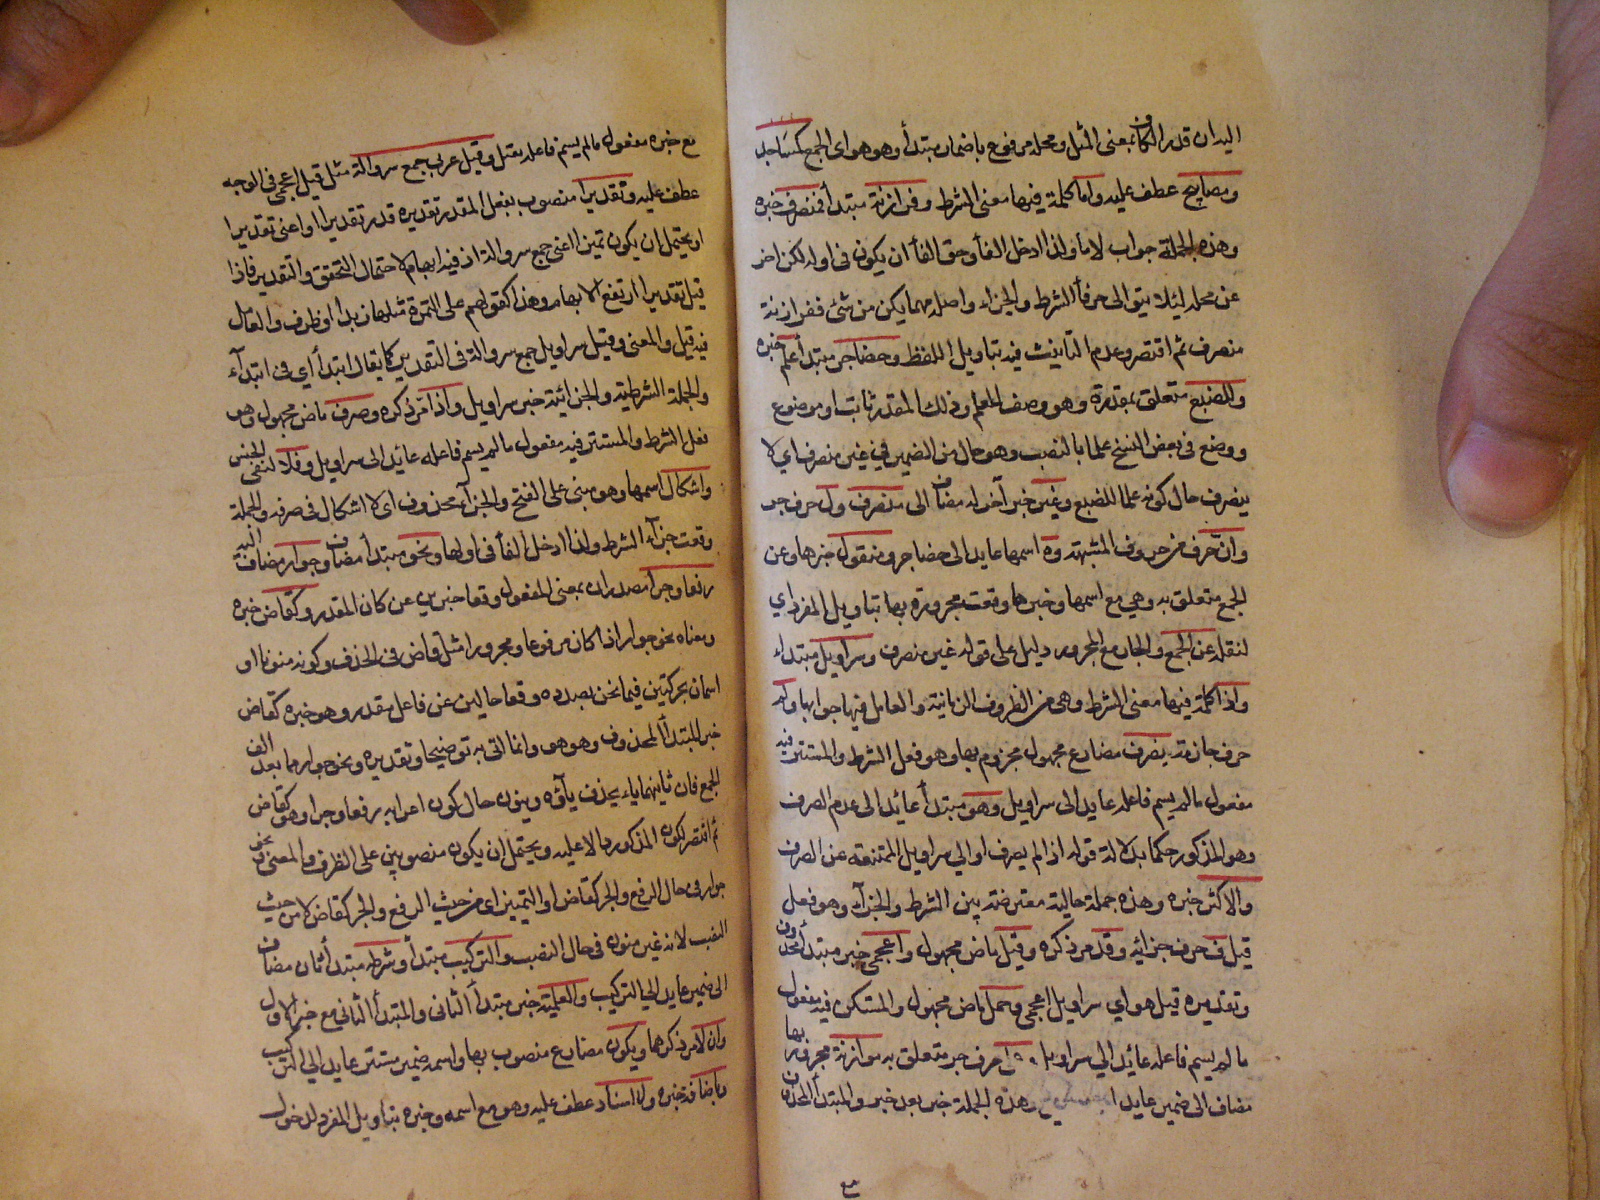 اليدان قدر الكاف بمعنى المثل ومحله مرفوع باضمار مبتدأ وهو هو اى الجمع كمساجد
ومصابيح عطف عليه واما كلمة فيها معنى الشرط وفرازنة مبتدأ فمنصرف خبره
وهذه الجملة جواب لاما ولذا ادخل الفأ وحق الفأ ان يكون فى اوله لكن اخر
عن محله ليئلا يتوالى حرفأ الشرط والجزاء واصله مهما يكن من شئ ففرازنة
منصرف ثم اقتصر وعدم التأنيث فيه بتاويل اللفظ وحضاجر مبتدأ علم خبره
وللضبع متعلق بمقدرة وهو وصف للعلم وذلك المقدر ثابت او موضوع
ووضع فى بعض النسخ علما بالنصب وهو حال من الضمير فى غير منصرف اي لا
ينصرف حال كونه علما للضبع وغير خبر آخر له مضاف الى منصرف ول حرف جر
وان حرف من حروف المشبهة وه اسمها عايد الى حضاجر ومنقول خبرها وعن
الجمع متعلق به وهي مع اسمها وخبرها وقعت مجرورة بها بتاويل المفرد اي
لنقله عن الجمع والجار مع المجرور دليل على قوله غير منصرف وسراويل مبتداء
واذا كلمة فيها معنى الشرط وهى من الظروف الزمانية والعامل فيها جوابها ولم
حرف جازمة يصرف مضارع مجهول مجزوم بها وهو فعل الشرط والمستتر فيه
مفعول مالم يسم فاعله عايد الى سراويل وهو مبتدأ عائد الى عدم الصرف
وهو المذكور حكما بدلالة قوله اذا لم يصرف او الي سراويل الممتنعة عن الصرف
والاكثر خبره وهذه جملة حالية معترضة بين الشرط والجزآء وهو فعل
قيل ف حرف جزائيه وقد مر ذكره وقيل ماض مجهول واعجمى خبر مبتدأ محذوف
وتقديره قيل هو اي سراويل اعجمى وحمل ماض مجهول والمستكن فيه مفعول
مالم يسم فاعله عائد الي سراويل حرف جر متعلق به موازنة مجرور بها
مضاف الى ضمير عايد وهذه الجملة خبر بعد خبر والمبتدأ المحذوف
مع
مع خبره مفعول مالم يسم فاعله بقيل وقيل عربى جمع سروالة مثل قيل اعجمى فى الوجه
عطف عليه وتقديرا منصوب بفعل المقدر تقديره قدر تقديرا او اعنى تقديرا
او يحتمل ان يكون تميزا اعنى جمع سروالة اذ فيه ابهام لاحتمال التحقق والتقدير فاذا
قيل تقديرا ارتفع الابهام وهذا كقولهم على التمرة مثلها زبدا او ظرف والعامل
فيه قيل والمعنى وقيل سراويل جمع سروالة فى التقدير كما يقال ابتدأ أي فى ابتدآء
والجملة الشرطية والجزائية خبر سراويل واذا مر ذكره وصرف ماض مجهول وهو
فعل الشرط والمستتر فيه مفعول مالم يسم فاعله عائد الى سراويل وفلا لنفى الجنس
واشكال اسمها وهو مبنى على الفتح والجزآء محذوف اى لا اشكال فى صرفه والجملة
وقعت جزآء الشرط ولذا ادخل الفأ فى اولها ونحو مبتدأ مضاف وجوار مضاف اليه
رفعا وجرا مصدران بمعنى المفعول وقعا خبرين عن كان المقدر وكقاض خبره
ومعناه نحو جوار اذا كان مرفوعا ومجرورا مثل قاض فى الحذف وكونه منونا او
اسمان بحركتين فيما نحن بصدده وقعا حالين عن فاعل مقدر وهو خبره كقاض
خبر المبتدأ المحذوف وهو هو وانما اتى به توضيحا وتقديره ونحو جوار مما بعد الف
الجمع فان ثانيهما ياء يحذف يآؤه وينون حال كون اعرابه رفعا وجرا وهو كقاض
ثم اقتصر لكون المذكور دالا عليه ويحتمل ان يكون منصوبين على الظرف والمعنى نحو
جوار فى حال الرفع والجر كقاض او التمييز اى من حيث الرفع والجر كقاض لا من حيث
النصب لانه غير منون فى حال النصب والتركيب مبتدأ وشرطه مبتدأ ثان مضاف
الى ضمير عايد الي التركيب والعلمية خبر مبتدأ الثانى والمبتدأ الثاني مع خبر الاول
وان لا مر ذكرها ويكون مضارع منصوب بها واسمه ضمير مستتر عايد الي التركيب
وباضافة خبره ولا اسناد عطف عليه وهو مع اسمه وخبره بتأويل المفرد لدخول